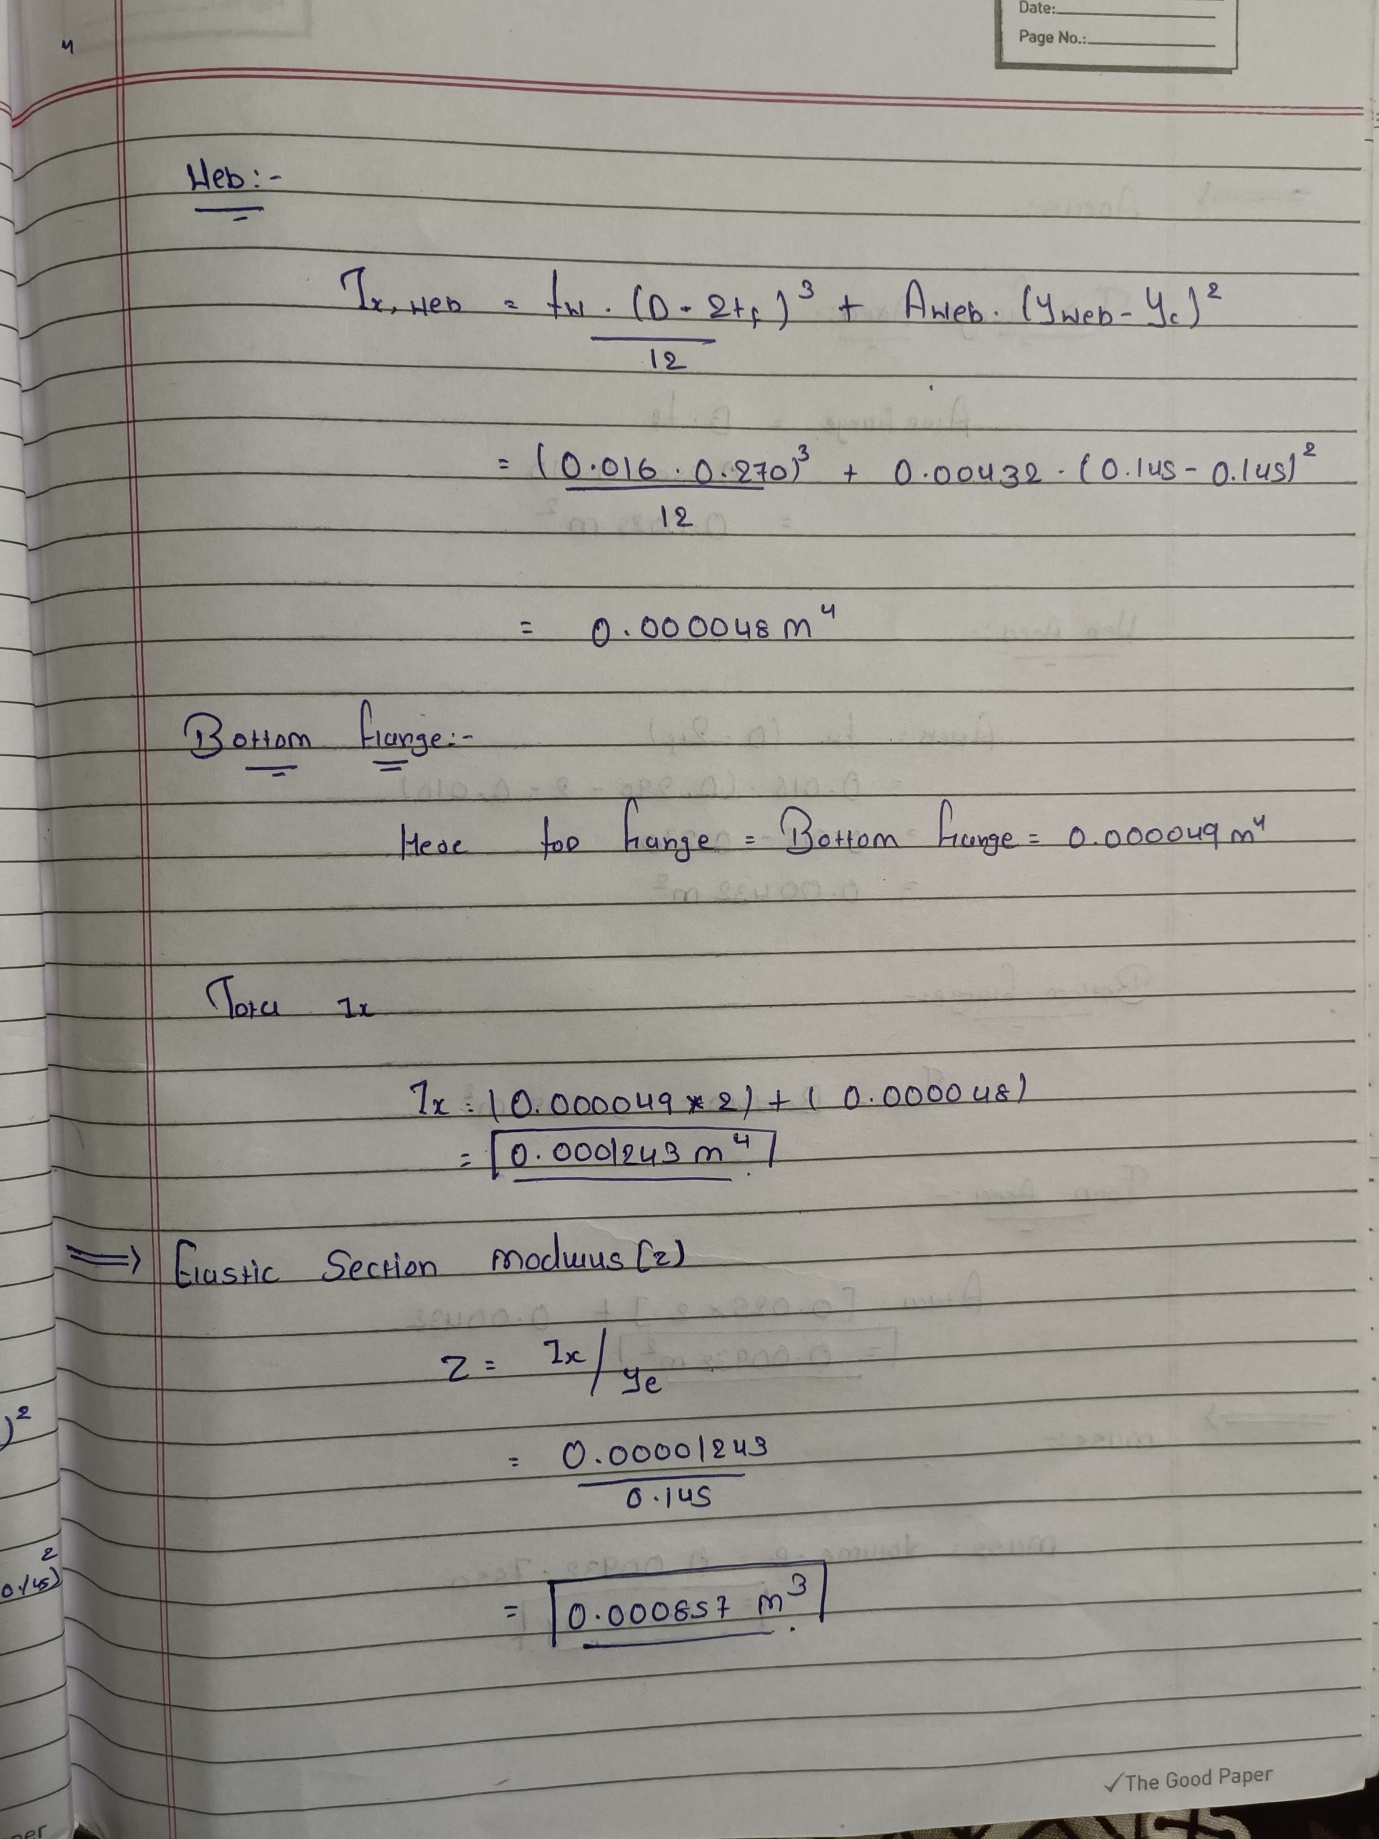 Date:
Page No.:
Web:-
Ix, web = tw . (D - 2tf)³ + Aweb . (yweb - yc)²
12
= (0.016 . 0.270)³ + 0.00432 . (0.145 - 0.145)²
12
= 0.000048 m⁴
Bottom flange:-
Here top flange = Bottom flange = 0.000049 m⁴
Total Ix
Ix = (0.000049 * 2) + (0.000048)
= 0.0001243 m⁴
⇒ Elastic Section modulus (z)
Z = Ix / ye
= 0.00001243
0.145
)²
= 0.000857 m³
0.145)²
✓The Good Paper